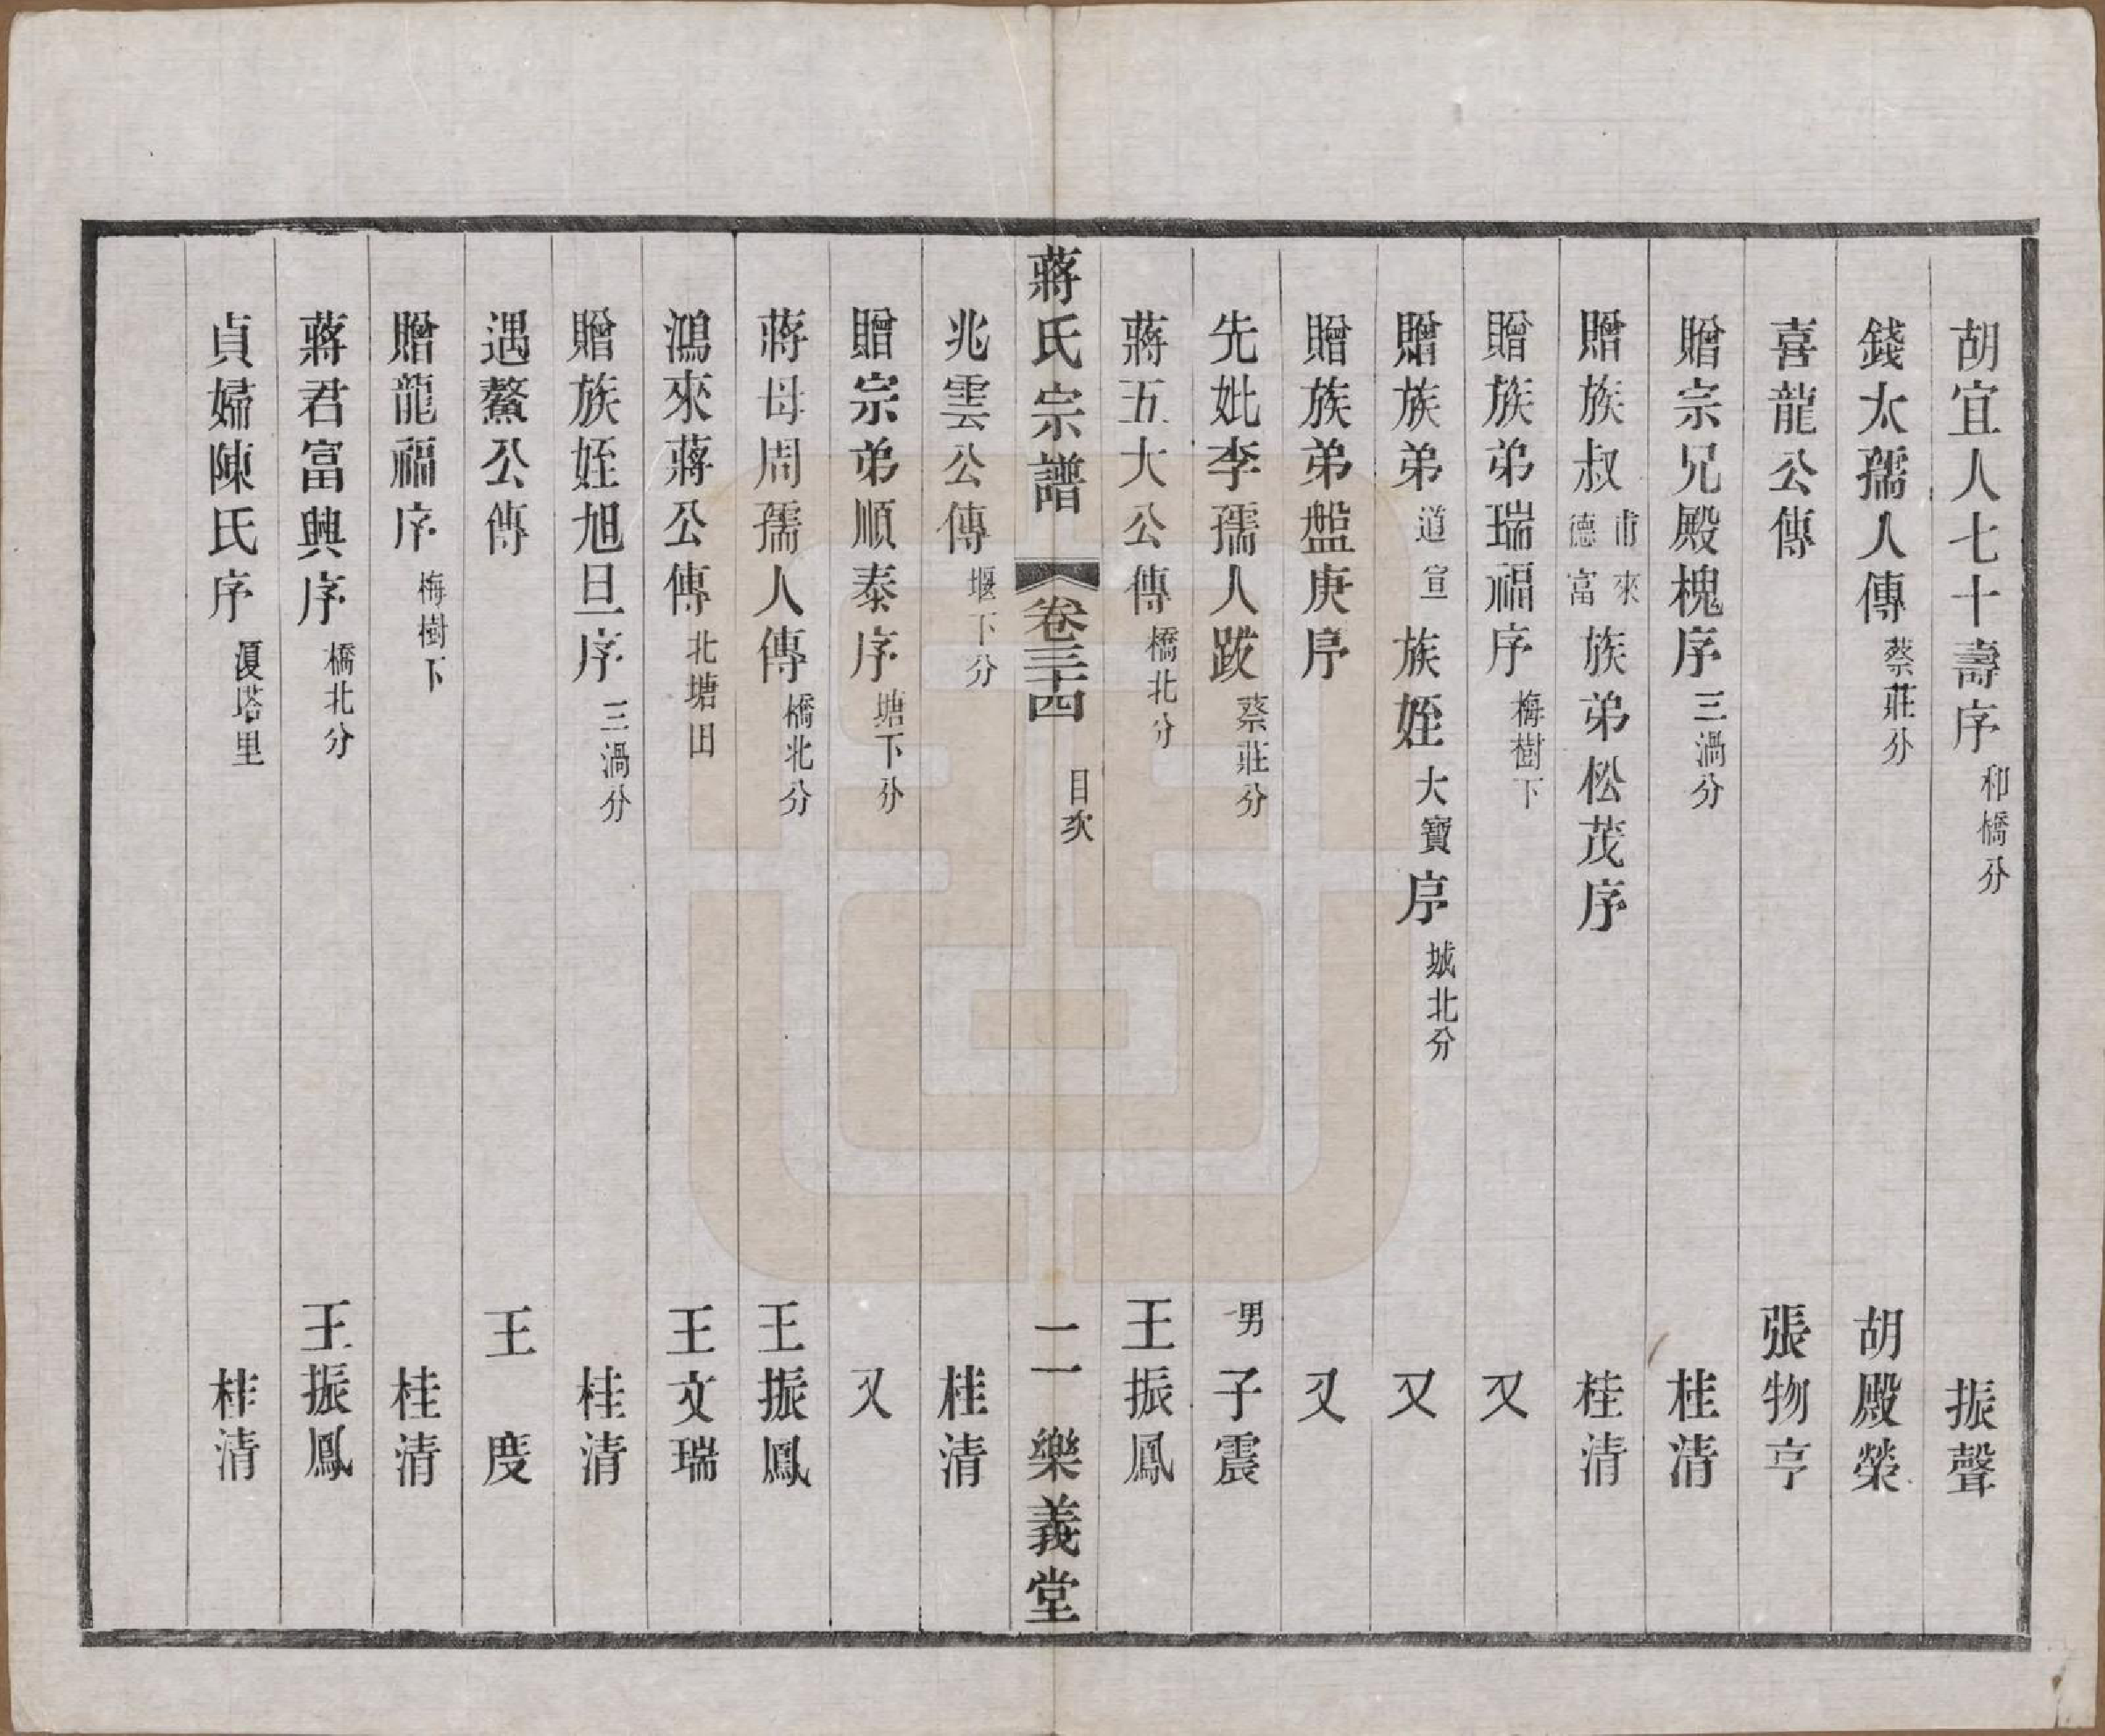 胡宜人七十壽序 和橋分 振聲
錢太孺人傳 蔡莊分 胡殿榮
喜龍公傳 張物亨
贈宗兄殿槐序 三渦分 桂清
贈族叔甫來德富族弟松茂序 桂清
贈族弟瑞福序 梅樹下 又
贈族弟道宣族姪大寶序 城北分 又
贈族弟盤庚序 又
先妣李孺人跋 蔡莊分 男子震
蔣五大公傳 橋北分 王振鳳
蔣氏宗譜 卷三十四 目次 二 一樂義堂
兆雲公傳 堰下分 桂清
贈宗弟順泰序 塘下分 又
蔣母周孺人傳 橋北分 王振鳳
鴻來蔣公傳 北塘田 王文瑞
贈族姪旭旦序 三渦分 桂清
遇鰲公傳 王度
贈龍福序 梅樹下 桂清
蔣君富興序 橋北分 王振鳳
貞婦陳氏序 塔里 桂清